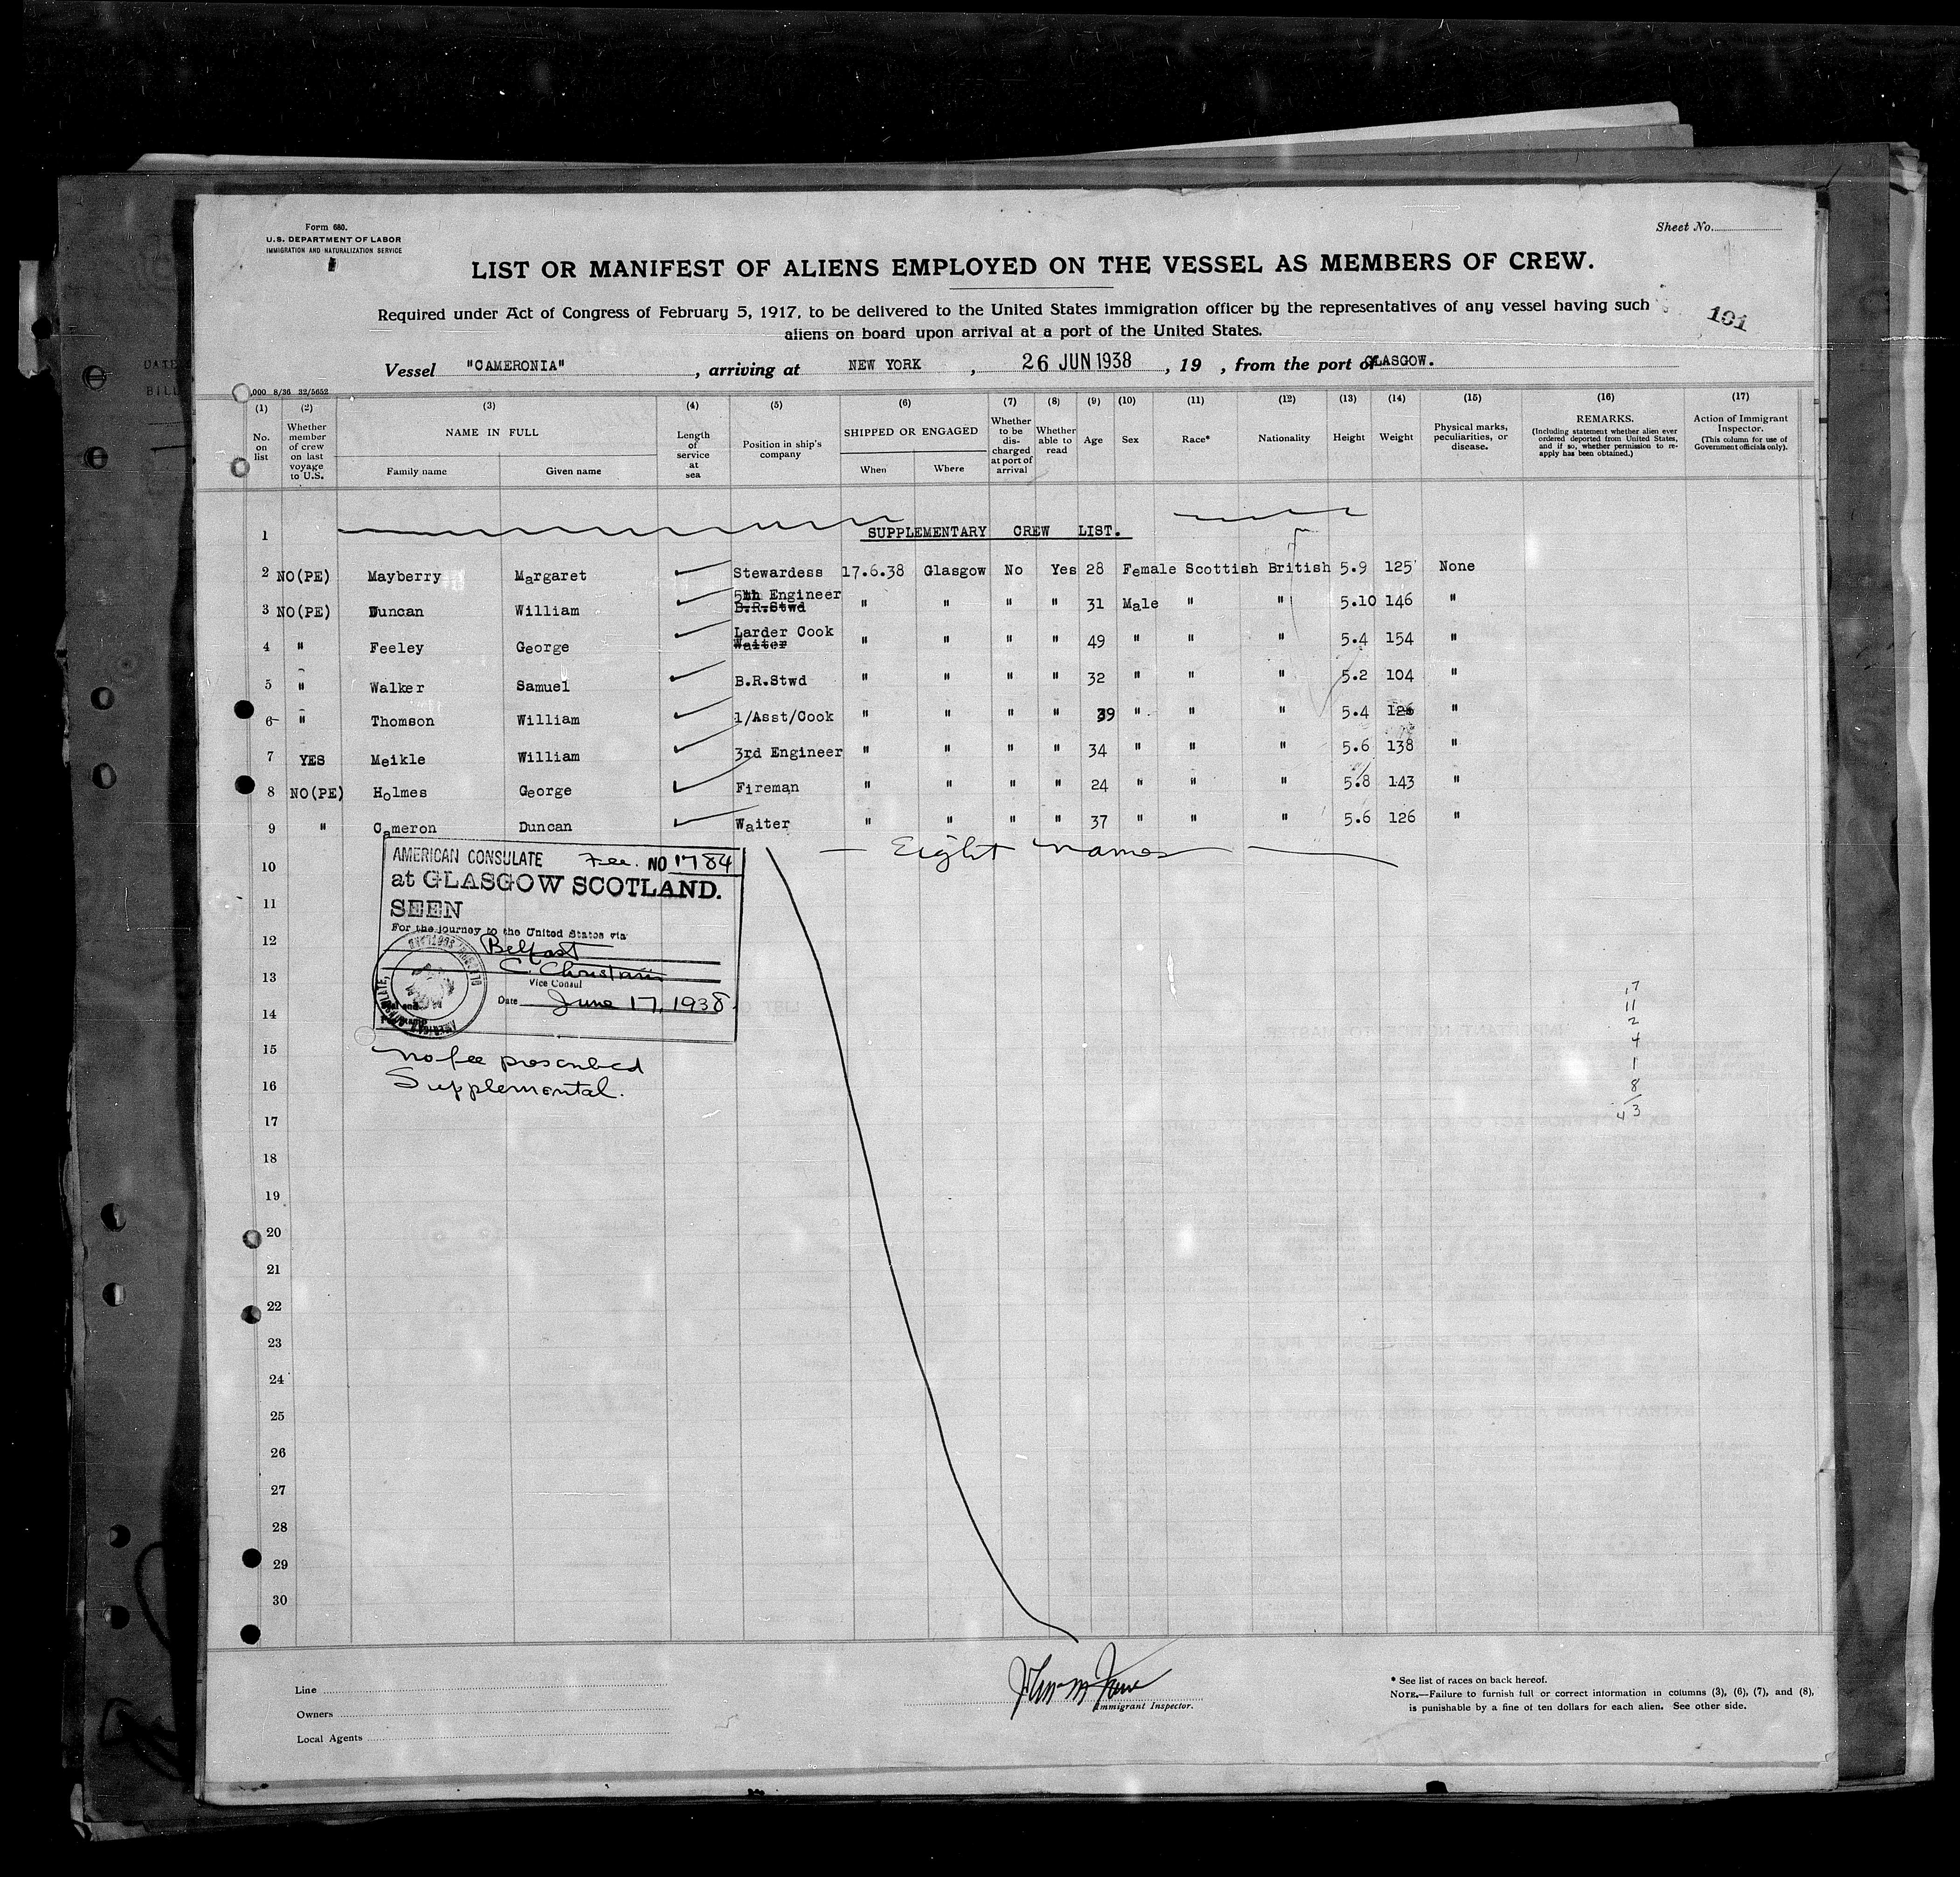 Form 680.
U.S. DEPARTMENT OF LABOR
IMMIGRATION AND NATURALIZATION SERVICE
Sheet No.
LIST OR MANIFEST OF ALIENS EMPLOYED ON THE VESSEL AS MEMBERS OF CREW.
Required under Act of Congress of February 5, 1917, to be delivered to the United States immigration officer by the representatives of any vessel having such
aliens on board upon arrival at a port of the United States.
101
Vessel "CAMERONIA", arriving at NEW YORK, 26 JUN 1938, 19 , from the port of GLASGOW.
,000 8/36 32/5652
(1) (2) (3) (4) (5) (6) (7) (8) (9) (10) (11) (12) (13) (14) (15) (16) (17)
No. on list
Whether member of crew on last voyage to U.S.
NAME IN FULL
Family name Given name
Length of service at sea
Position in ship's company
SHIPPED OR ENGAGED
When Where
Whether to be discharged at port of arrival
Whether able to read
Age
Sex
Race*
Nationality
Height
Weight
Physical marks, peculiarities, or disease.
REMARKS.
(Including statement whether alien ever ordered deported from United States, and if so, whether permission to re-apply has been obtained.)
Action of Immigrant Inspector.
(This column for use of Government officials only).
1 SUPPLEMENTARY CREW LIST.
2 NO(PE) Mayberry Margaret Stewardess 17.6.38 Glasgow No Yes 28 Female Scottish British 5.9 125 None
3 NO(PE) Duncan William 5th Engineer B.R.Stwd " " " " 31 Male " " 5.10 146 "
4 " Feeley George Larder Cook Waiter " " " " 49 " " " 5.4 154 "
5 " Walker Samuel B.R.Stwd " " " " 32 " " " 5.2 104 "
6 " Thomson William 1/Asst/Cook " " " " 39 " " " 5.4 126 "
7 YES Meikle William 3rd Engineer " " " " 34 " " " 5.6 138 "
8 NO(PE) Holmes George Fireman " " " " 24 " " " 5.8 143 "
9 " Cameron Duncan Waiter " " " " 37 " " " 5.6 126 "
— Eight names —
10
11
12
13
14
15
16
17
18
19
20
21
22
23
24
25
26
27
28
29
30
AMERICAN CONSULATE Fee. NO 1784
at GLASGOW SCOTLAND.
SEEN
For the journey to the United States via
Belfast
Vice Consul
Date June 17, 1938.
No fee prescribed
Supplemental.
17
11
2
4
1
8
43
Line
Owners
Local Agents
Immigrant Inspector.
* See list of races on back hereof.
NOTE.—Failure to furnish full or correct information in columns (3), (6), (7), and (8),
is punishable by a fine of ten dollars for each alien. See other side.